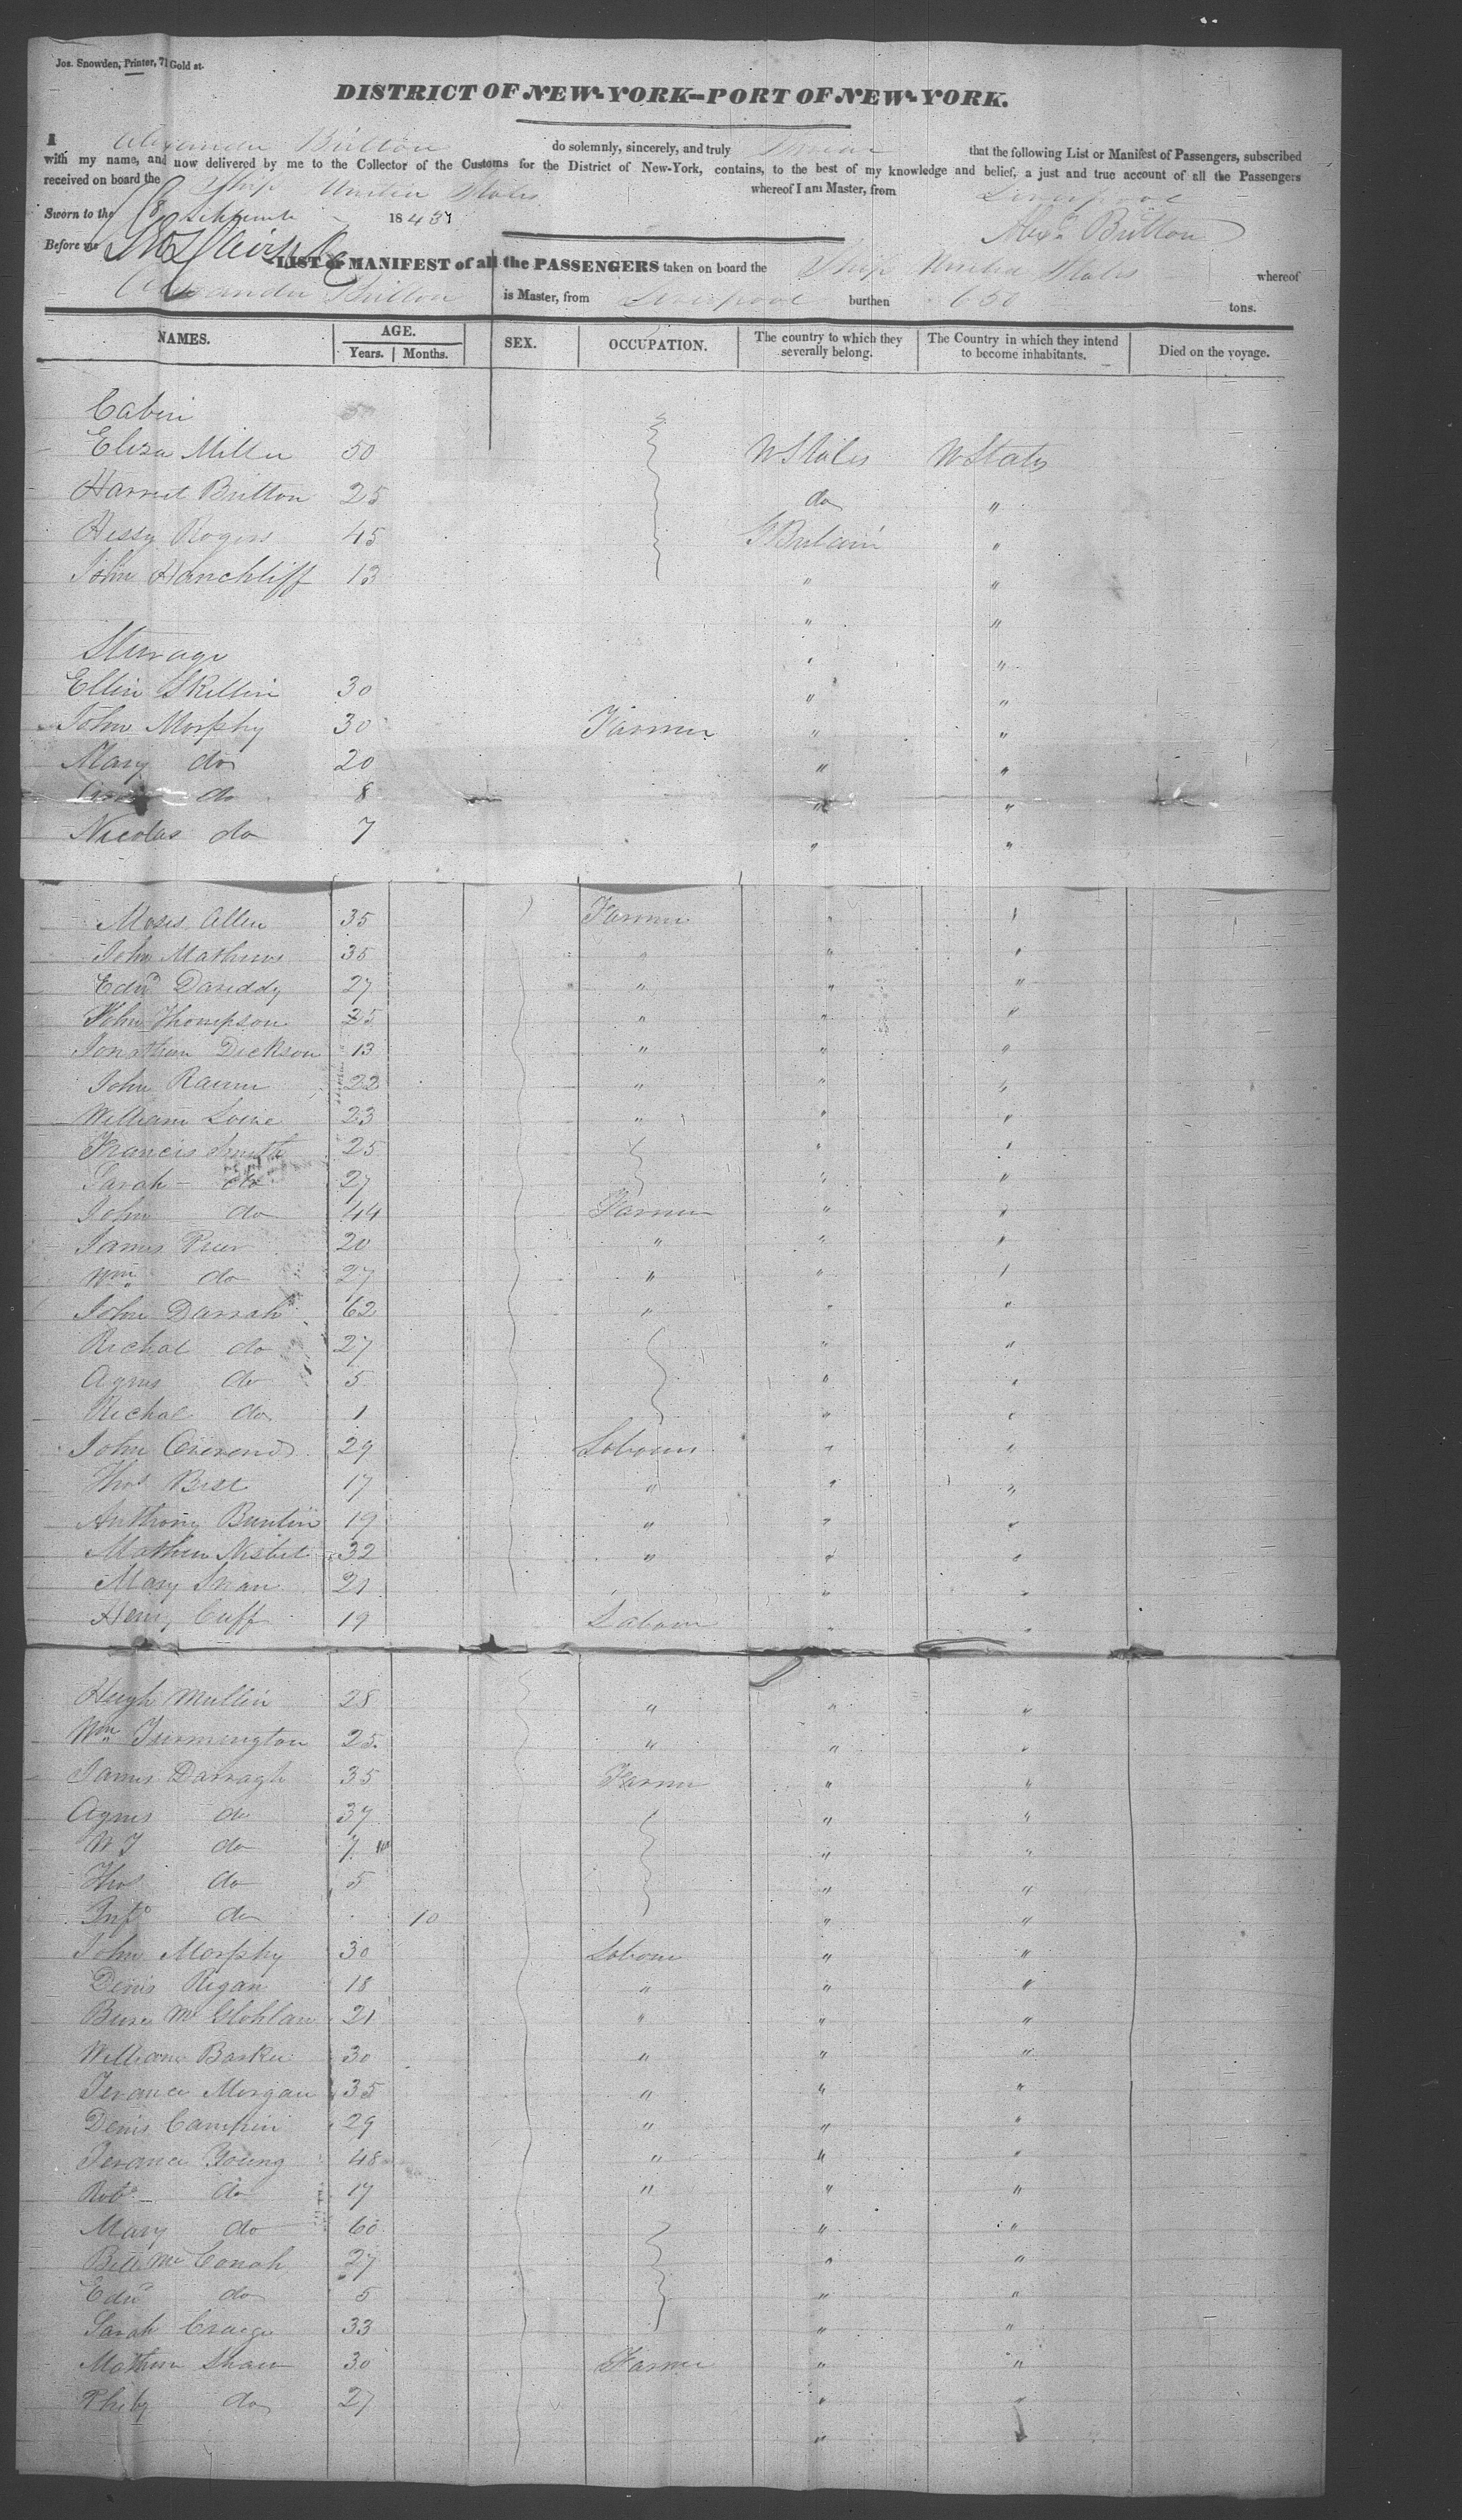 Jos. Snowden, Printer, 71 Gold st.
DISTRICT OF NEW-YORK—PORT OF NEW-YORK.
I Alexander Britton do solemnly, sincerely, and truly Swear that the following List or Manifest of Passengers, subscribed
with my name, and now delivered by me to the Collector of the Customs for the District of New-York, contains, to the best of my knowledge and belief, a just and true account of all the Passengers
received on board the Ship United States whereof I am Master, from Liverpool
Sworn to the 18 Septembr 1843
Alexr Britton
Before me
LIST or MANIFEST of all the PASSENGERS taken on board the Ship United States whereof
Alexander Britton is Master, from Liverpool burthen 650 tons.
NAMES. AGE. Years. Months. SEX. OCCUPATION. The country to which they severally belong. The Country in which they intend to become inhabitants. Died on the voyage.
Cabin
Eliza Miller 50 U States U States
Harriet Britton 25 do "
Hessy Rogers 45 G Britain "
John Hanchliff 13 " "
" "
Sterrage " "
Ellin Skillin 30 " "
John Morphy 30 Farmer " "
Mary do 20 " "
do 8 " "
Nicolas do 7 " "
Moses Allen 35 Farmer " "
John Mathews 35 " " "
Edwd Dareddy 27 " " "
John Thompson 25 " " "
Jonathan Dickson 13 " " "
John 22 " " "
William 23 " " "
Francis Smith 25 " "
Sarah do 27 " "
John do 44 Farmer " "
James 20 " " "
Wm do 27 " " "
John Darrah 62 " " "
Richal do 27 " "
Agnes do 5 " "
Richal do 1 " "
John 29 Labourer " "
Thos Best 17 " " "
Anthony Buntin 19 " " "
Mathew Nisbet 32 " " "
Mary 21 " "
Henry Cuff 19 Labourer " "
Hugh Mullin 28 " " "
Wm Turmington 25 " " "
James Darragh 35 Farmer " "
Agnes do 37 " "
W J do 7 " "
Thos do 5 " "
Inft do 10 " "
John Morphy 30 Labourer " "
Denis Regan 18 " " "
21 " " "
William Barker 30 " " "
Terance Morgan 35 " " "
Denis 29 " " "
Terance Young 48 " " "
Robt do 17 " " "
Mary do 60 " "
Mc 27 " "
Edwd do 5 " "
Sarah Craige 33 " "
Mathew Shaw 30 Farmer " "
Pheby do 27 " "
" "